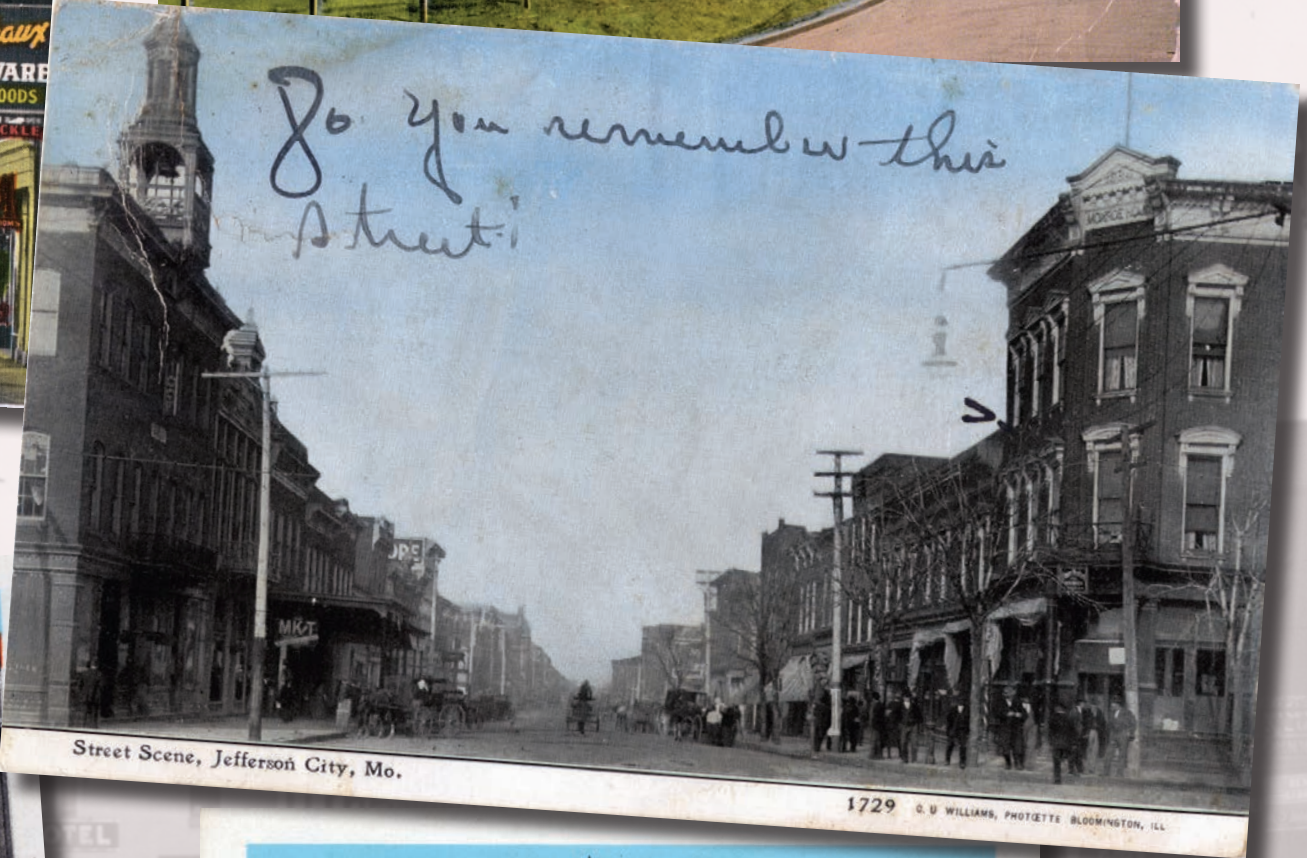 aux
WARE
OODS
CKLE
Do you remember this
street
MONROE HO
ORE
MK&T
Street Scene, Jefferson City, Mo.
1729 C. U WILLIAMS, PHOTOETTE BLOOMINGTON, ILL
TEL